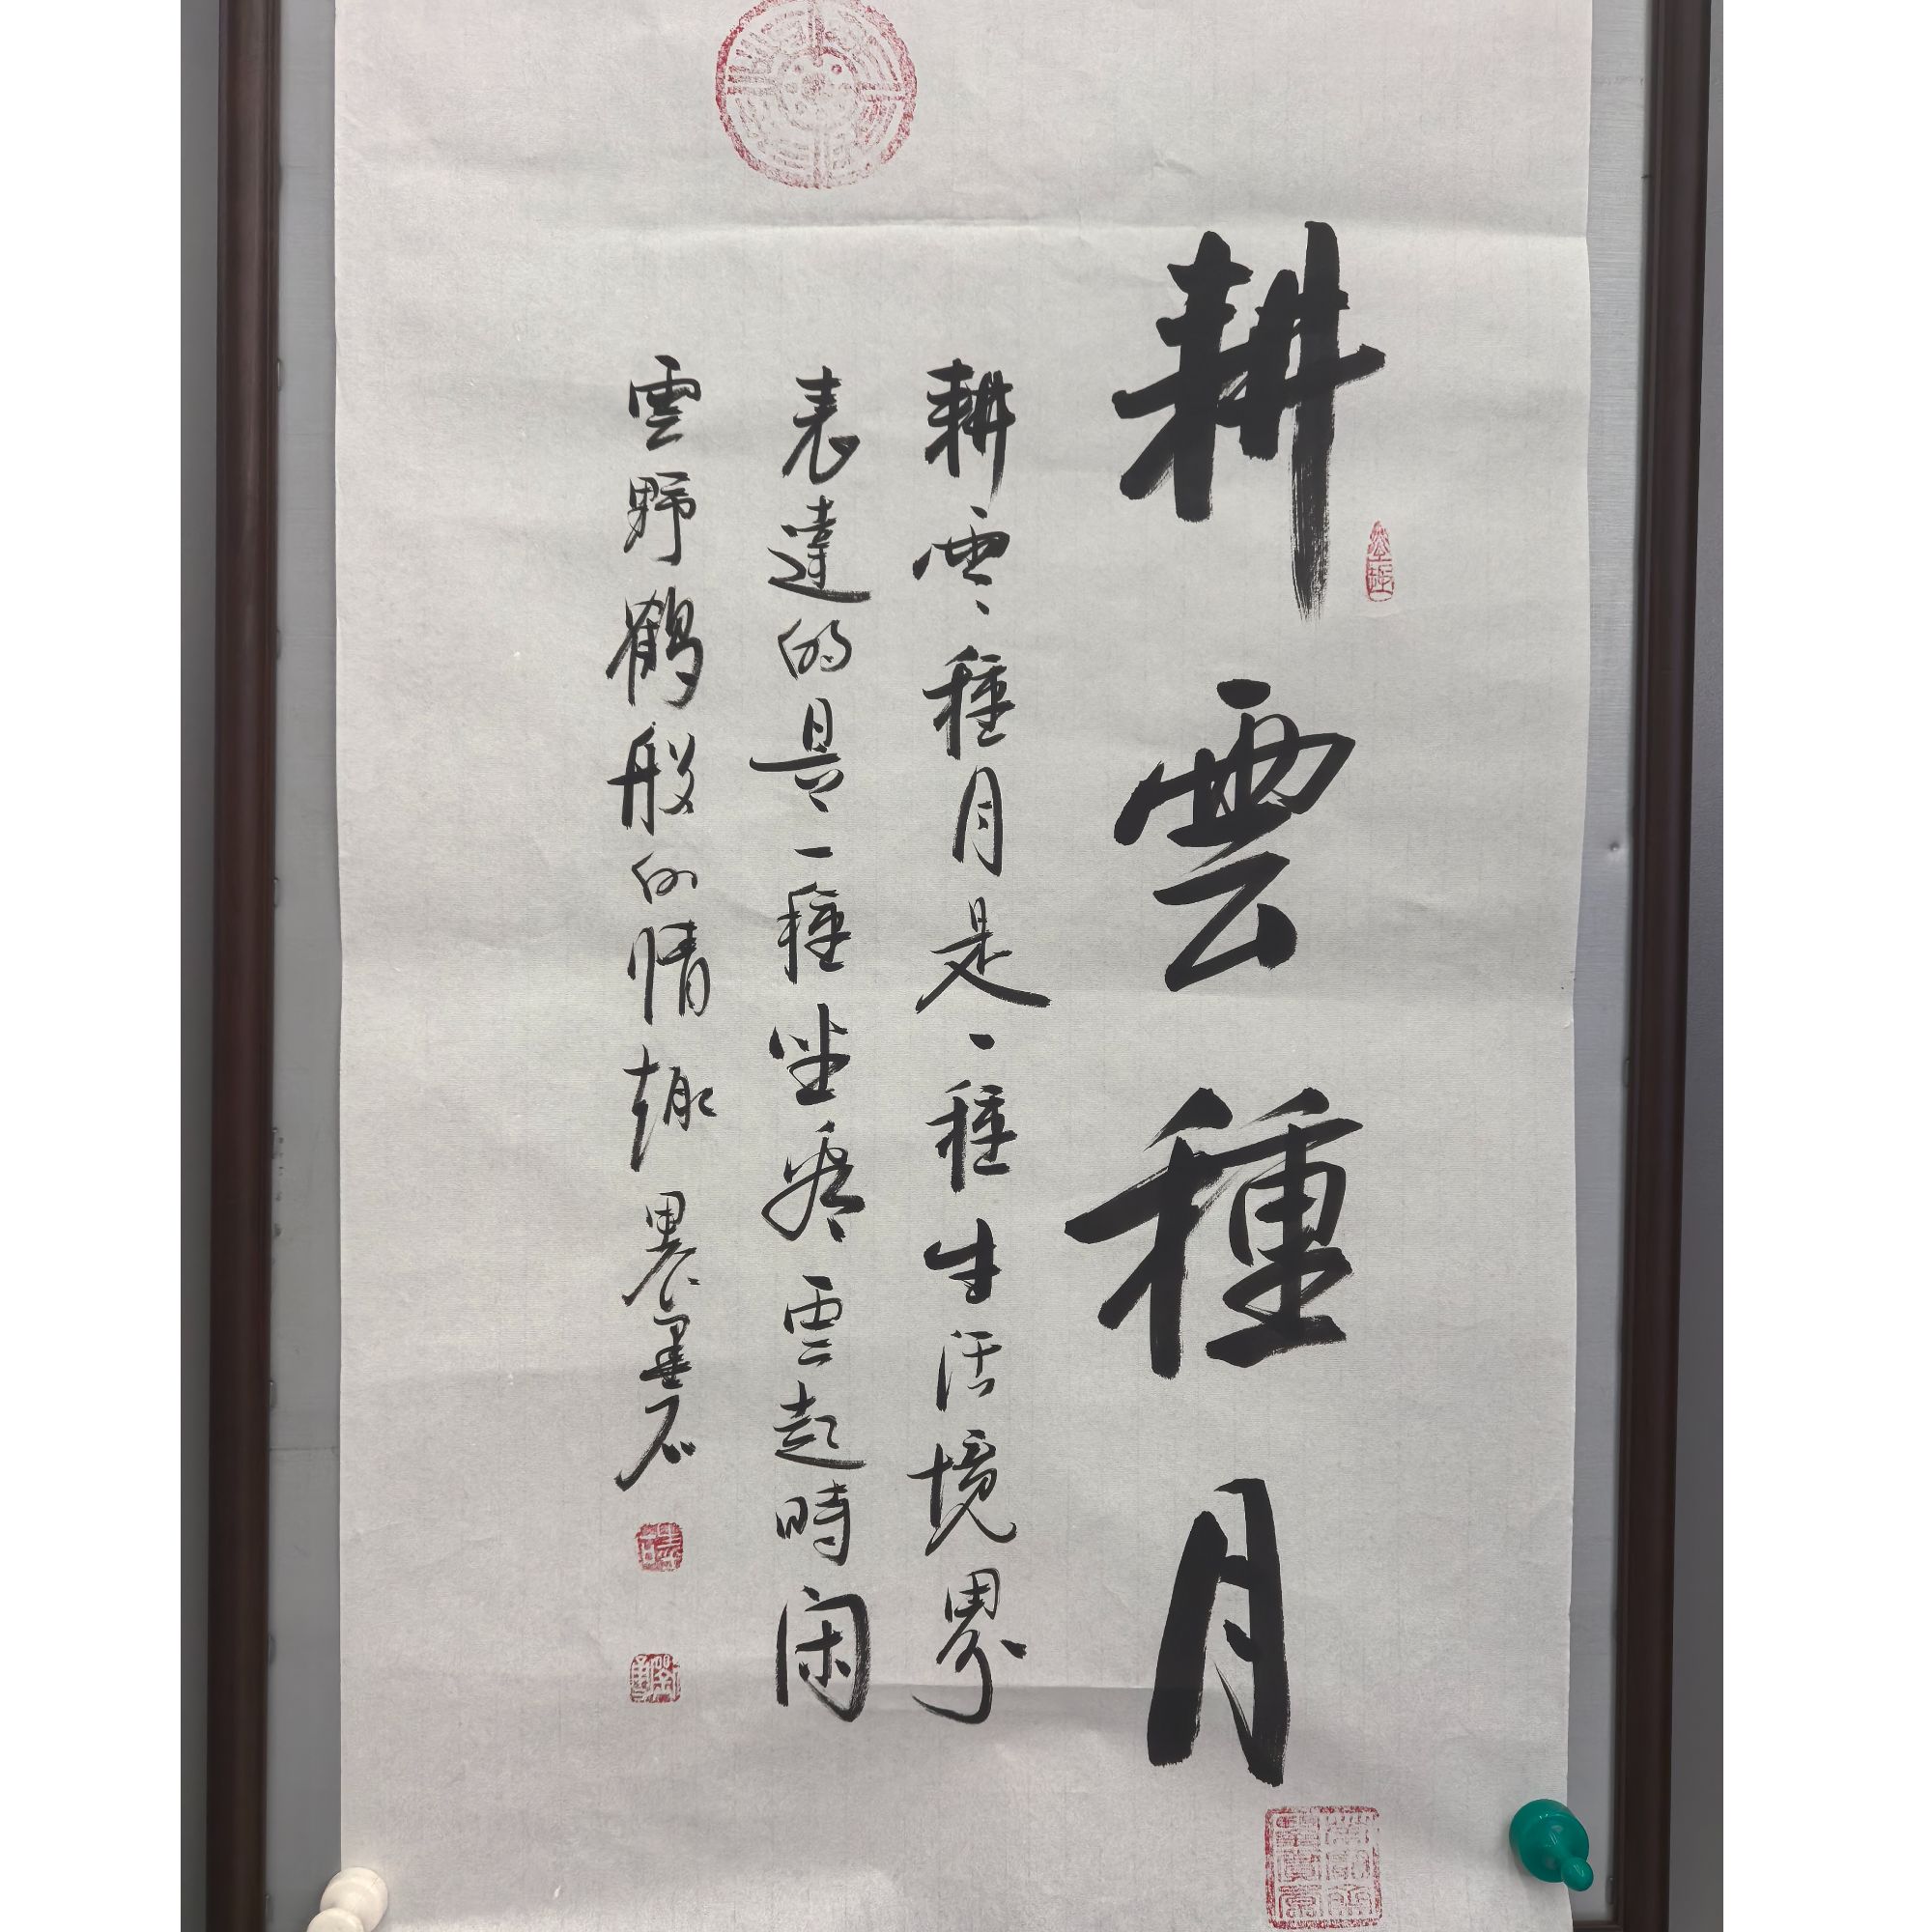 耕雲種月
耕雲種月是一種生活境界
表達的是一種坐看雲起時閑
雲野鶴般的情趣 墨石